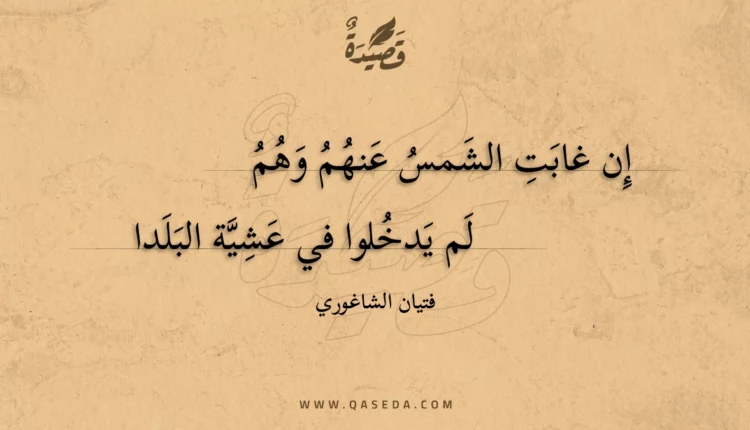 قَصِيْدَةٌ
إِن غابَتِ الشَمسُ عَنهُمُ وَهُمُ
لَم يَدخُلوا في عَشِيَّة البَلَدا
فتيان الشاغوري
WWW.QASEDA.COM